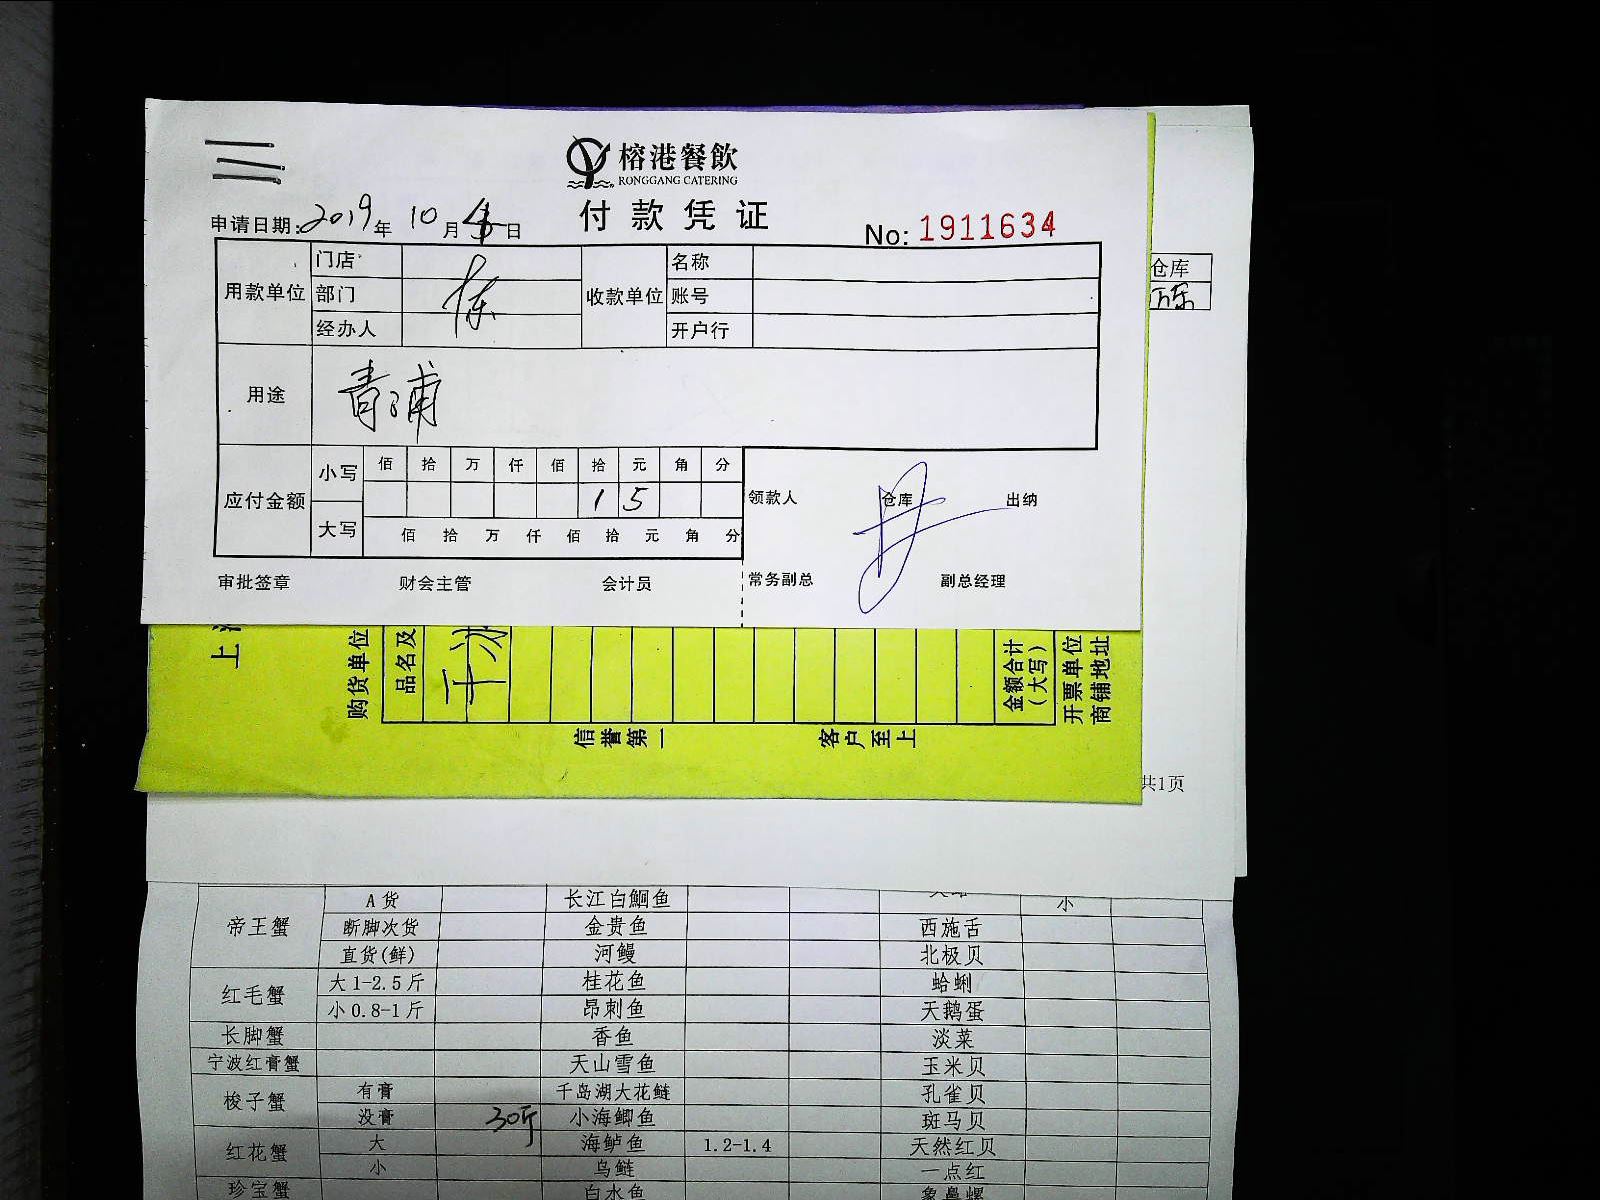 榕港餐飲
RONGGANG CATERING
付款凭证
申请日期:2019年10月日
No:1911634
用款单位 门店 收款单位 名称
部门 账号
经办人 开户行
栋
用途 青浦
应付金额 小写 佰 拾 万 仟 佰 拾 元 角 分
1 5
大写 佰 拾 万 仟 佰 拾 元 角 分
领款人 仓库 出纳
审批签章 财会主管 会计员 常务副总 副总经理
仓库
上
购货单位
品名及
干冰
金额合计
(大写)
开票单位
商铺地址
信誉第一 客户至上
共1页
帝王蟹 A货 长江白鮰鱼 小
断脚次货 金贵鱼 西施舌
直货(鲜) 河鳗 北极贝
红毛蟹 大1-2.5斤 桂花鱼 蛤蜊
小0.8-1斤 昂刺鱼 天鹅蛋
长脚蟹 香鱼 淡菜
宁波红膏蟹 天山雪鱼 玉米贝
梭子蟹 有膏 千岛湖大花鲢 孔雀贝
没膏 30斤 小海鲫鱼 斑马贝
红花蟹 大 海鲈鱼 1.2-1.4 天然红贝
小 乌鲢 一点红
珍宝蟹 白水鱼 象鼻螺